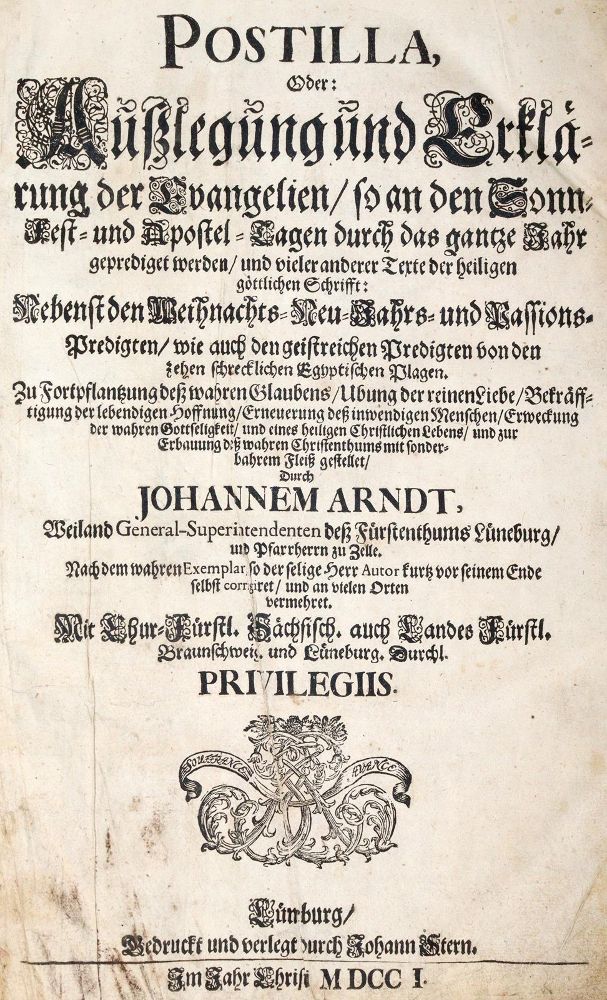 POSTILLA,
Oder:
Außlegung und Erklä-
rung der Evangelien/ so an den Sonn-
Fest- und Apostel-Tagen durch das gantze Jahr
geprediget werden/ und vieler anderer Texte der heiligen
göttlichen Schrifft:
Nebenst den Weihnachts-Neu-Jahrs- und Passions-
Predigten/ wie auch den geistreichen Predigten von den
zehen schrecklichen Egyptischen Plagen.
Zu Fortpflantzung deß wahren Glaubens/ Ubung der reinen Liebe/ Bekräff-
tigung der lebendigen Hoffnung/ Erneuerung deß inwendigen Menschen/ Erweckung
der wahren Gottseligkeit/ und eines heiligen Christlichen Lebens/ und zur
Erbauung deß wahren Christenthums mit sonder-
bahrem Fleiß gestellet/
Durch
JOHANNEM ARNDT,
Weiland General-Superintendenten deß Fürstenthums Lüneburg/
und Pfarrherrn zu Zelle.
Nach dem wahren Exemplar so der selige Herr Autor kurtz vor seinem Ende
selbst corrgiret/ und an vielen Orten
vermehret.
Mit Chur-Fürstl. Sächsisch. auch Landes Fürstl.
Braunschweig. und Lüneburg. Durchl.
PRIVILEGIIS.
SOUFRANCE AVANCE
Lünburg/
Gedruckt und verlegt durch Johann Stern.
Im Jahr Christi MDCC I.